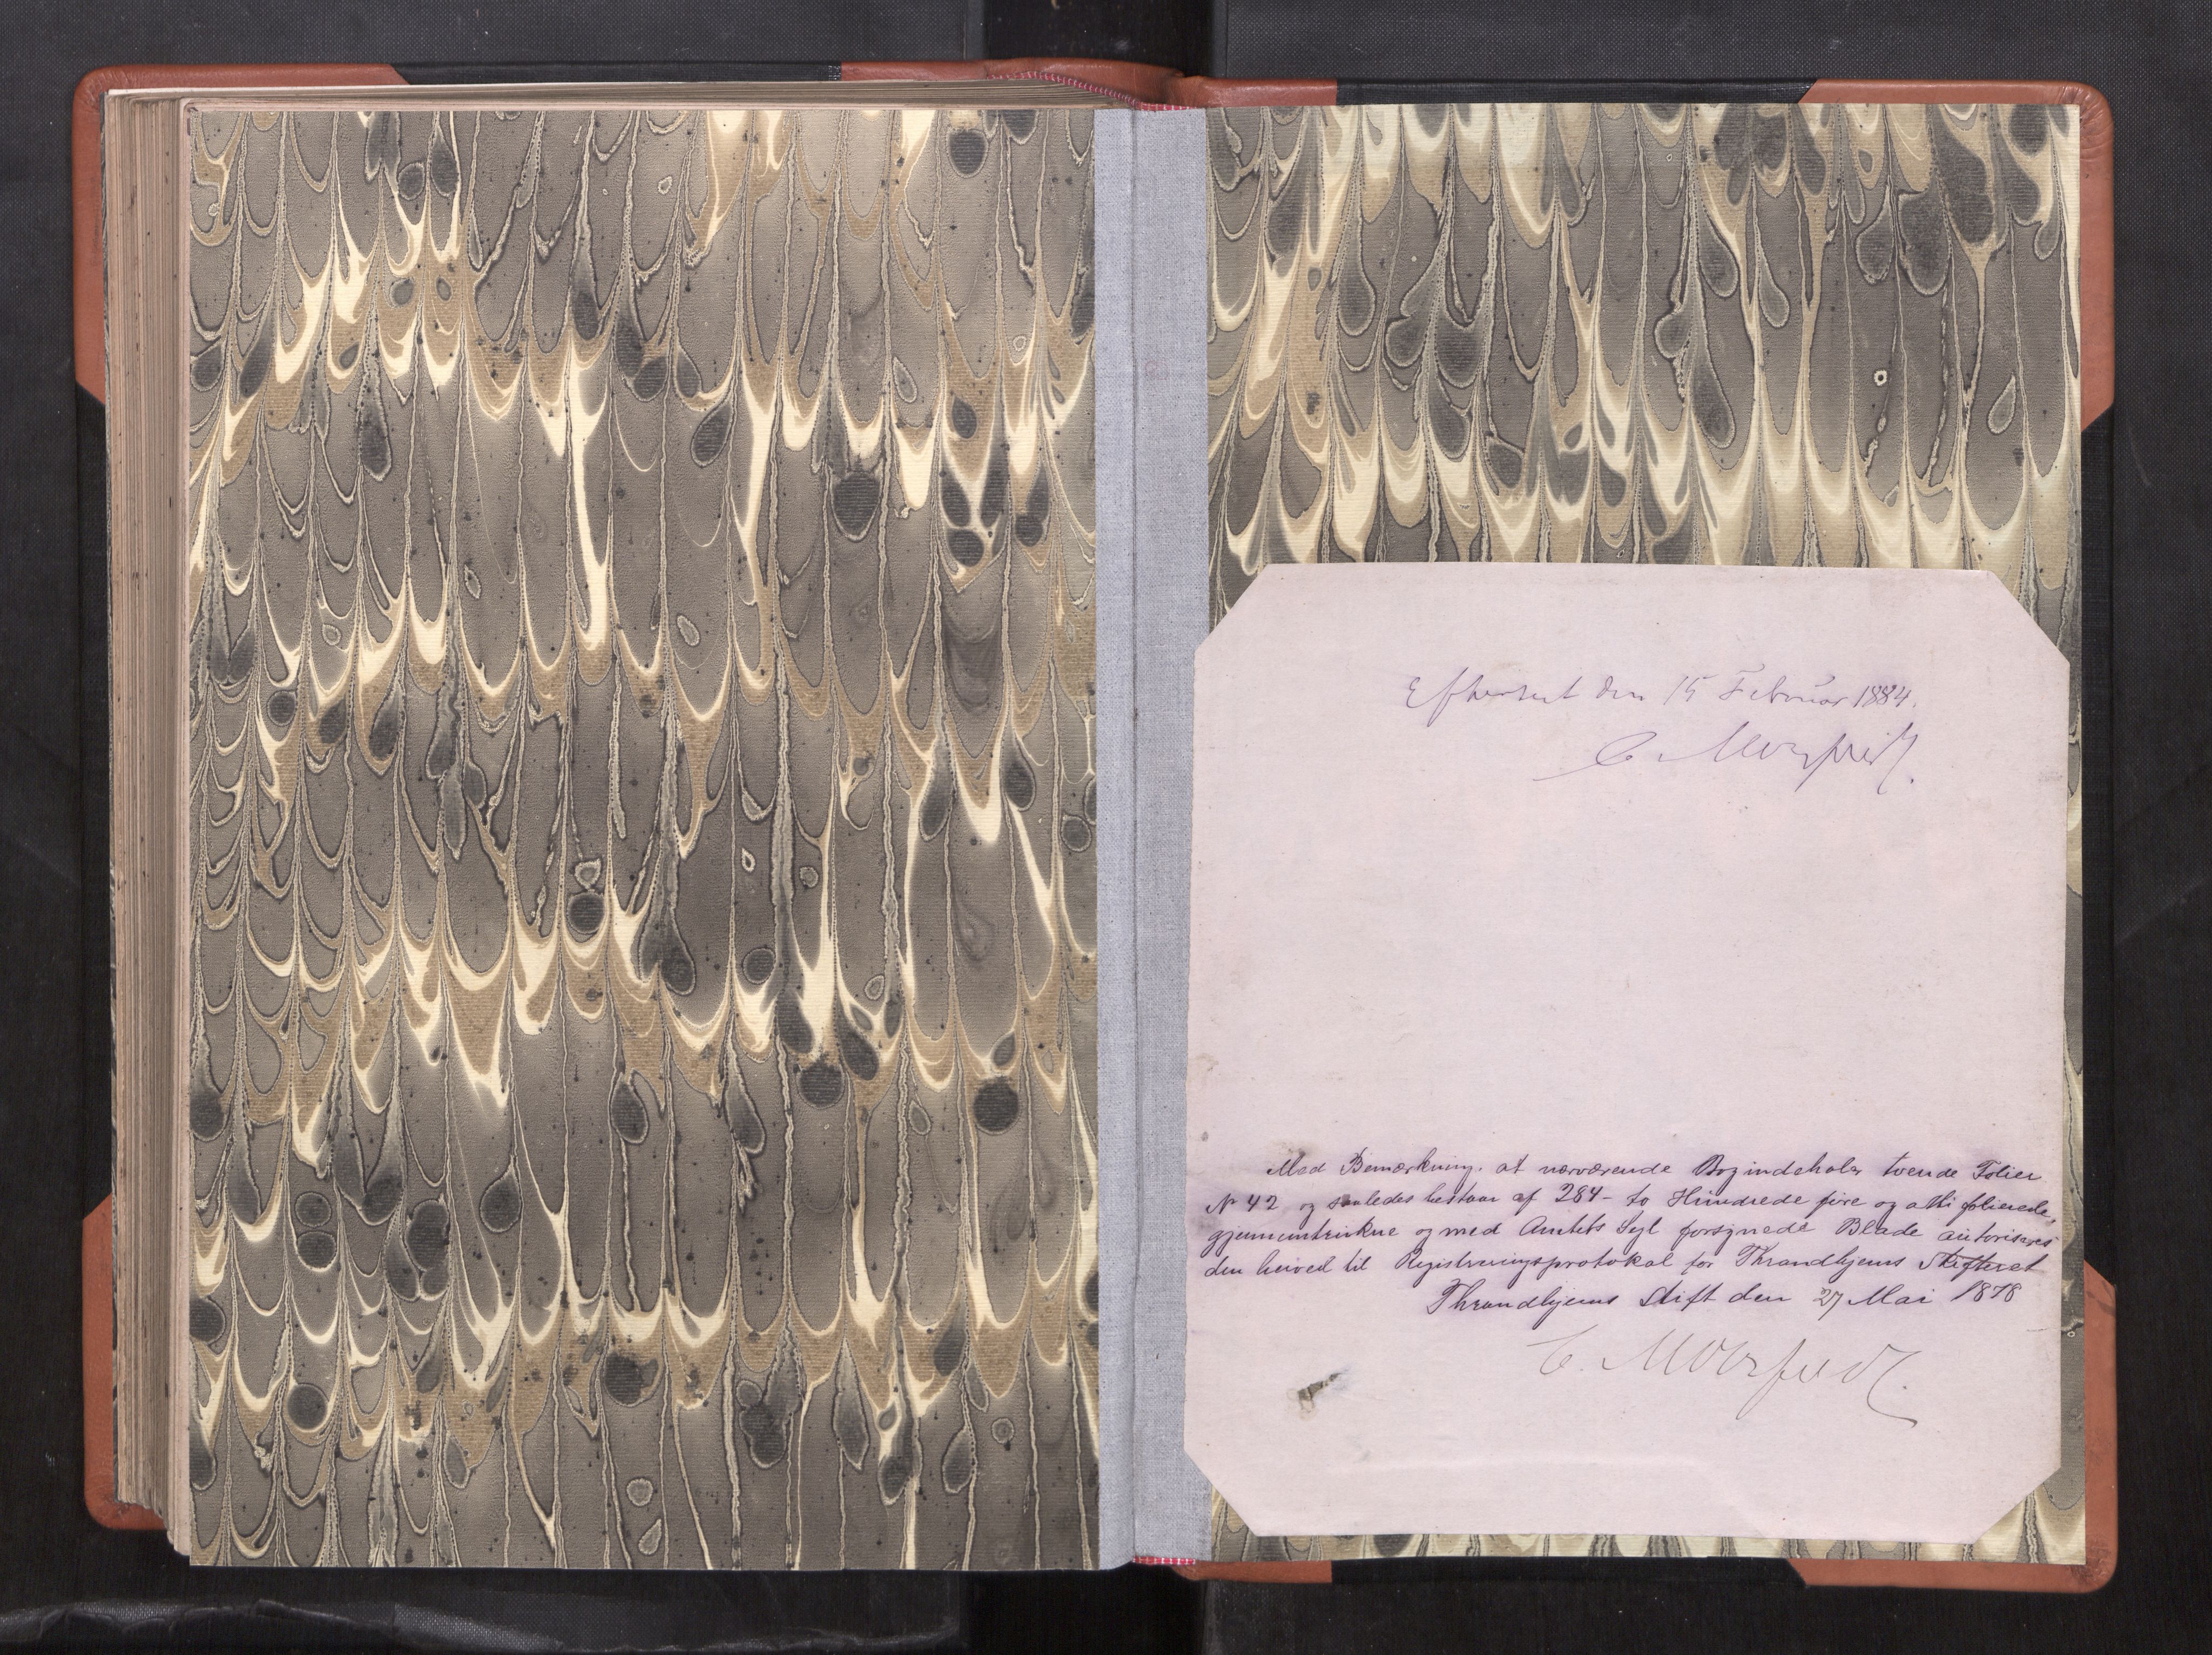 Efterseet den 15 Februar 1884.
C. Motzfeldt.
Med Bemærkning, at nærværende Bog indeholder tvende Folier
No 42 og saaledes bestaar af 284 - to Hundrede fire og otti folierede,
gjennemtrukne og med Amtets Segl forsynede Blade autoriseres
den herved til Registreringsprotokol for Throndhjems Skifteret
Throndhjems Stift den 27 Mai 1878
C. Motzfeldt.